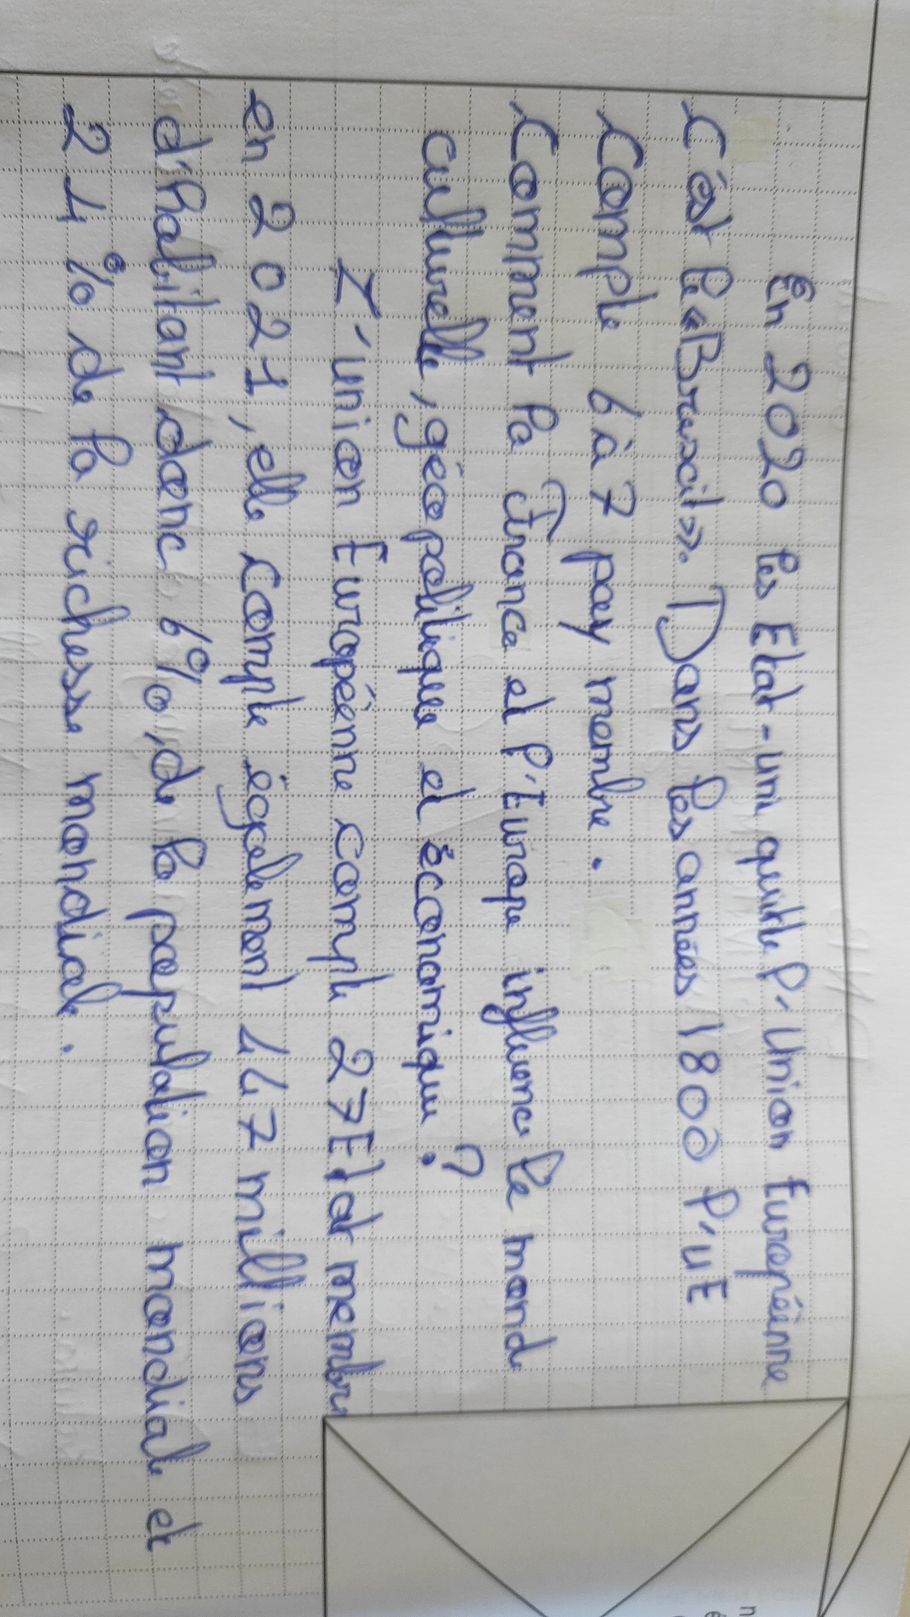 En 2020 les Etat-uni quitte l'Union Européenne
C'est le «Brescil». Dans les années 1800 l'UE
Compte 6 à 7 pay membre.
Comment la France et l'Europe influence le monde
culturelle, géopolitique et économique ?
L'union Européenne compte 27 Etat membre
en 2021, elle compte également 447 millions
d'habitant donc 6%, de la population mondiale et
21% de la richesse mondiale.